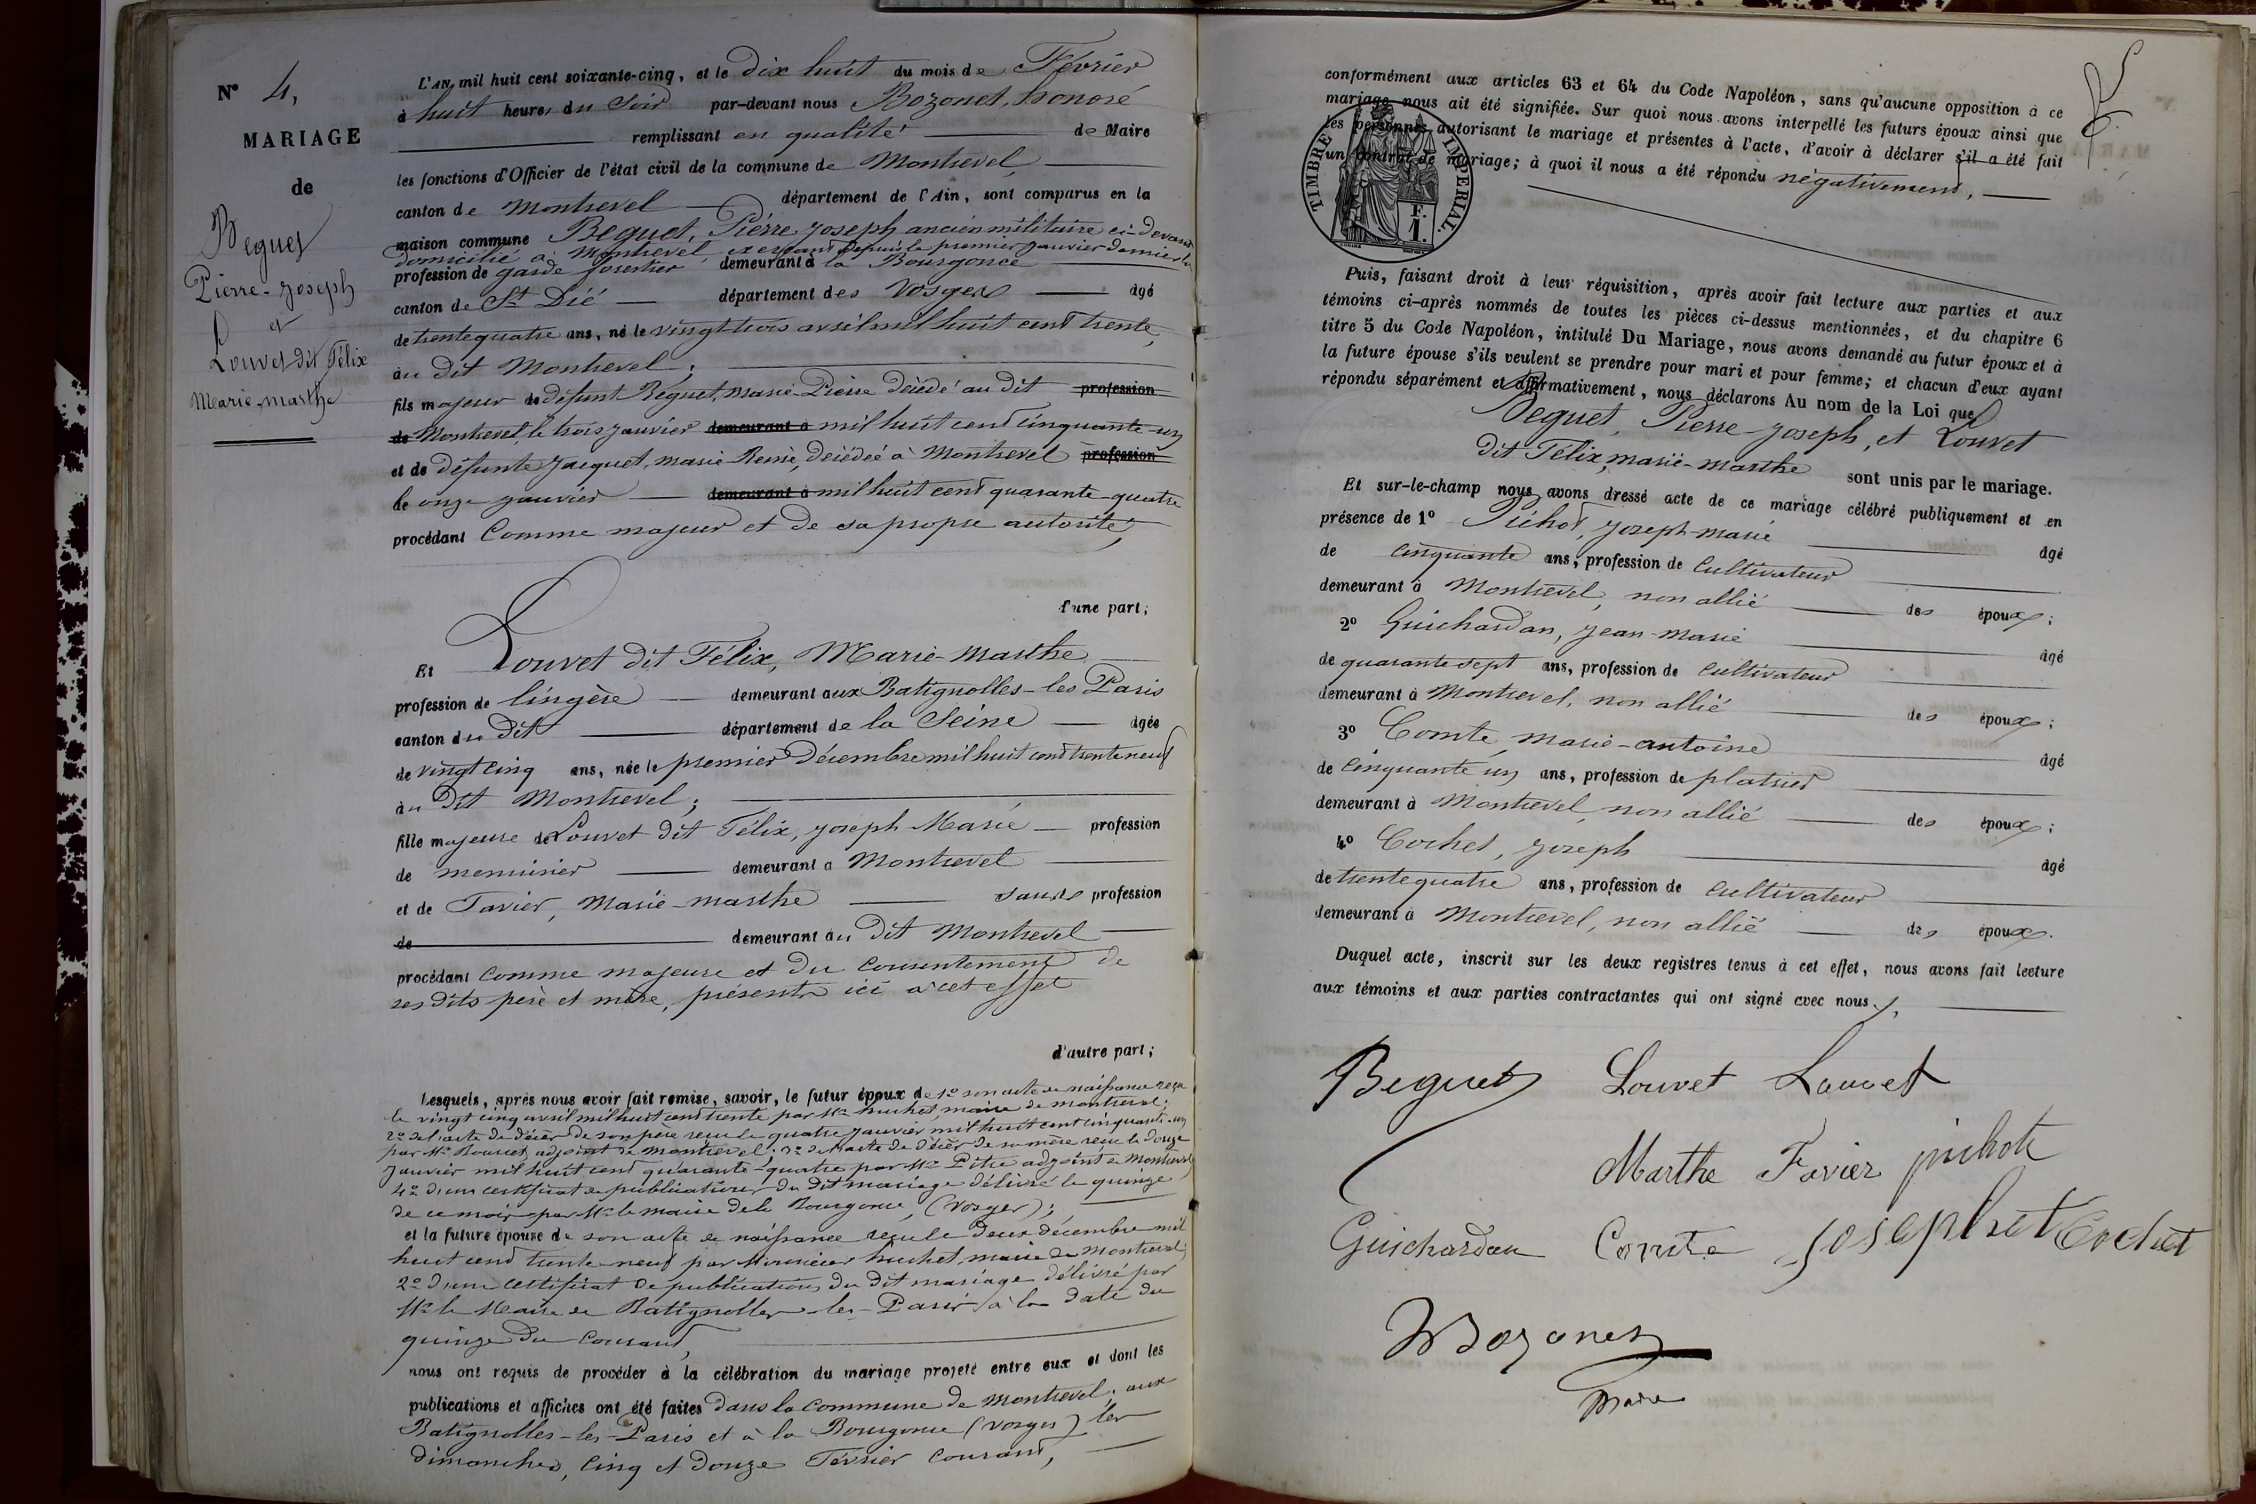 N° 4,
MARIAGE
de
Beguet
Pierre-Joseph
et
Louvet dit Félix
Marie-Marthe
L'AN, mil huit cent soixante-cinq, et le dix huit du mois de Février
à huit heures du Soir par-devant nous Bozonet, honoré
remplissant en qualité de Maire
les fonctions d'Officier de l'état civil de la commune de Montrevel,
canton de Montrevel département de l'Ain, sont comparus en la
maison commune Beguet, Pierre Joseph ancien militaire ci-devant
domicilié à Montrevel, exerçant depuis le premier janvier dernier la
profession de garde forestier demeurant à la Bourgonce
canton de St Dié département des Vosges âgé
de trente quatre ans, né le vingt trois avril mil huit cent trente,
au dit Montrevel;
fils majeur de défunt Béguet, Marie-Pierre décédé au dit profession
de Montrevel le trois janvier demeurant à mil huit cent cinquante-un
et de défunte Jacquet, Marie Reine, décédée à Montrevel profession
le onze janvier demeurant à mil huit cent quarante-quatre
procédant Comme majeur et de sa propre autorité,
d'une part;
Et Louvet dit Félix, Marie-Marthe
profession de lingère demeurant aux Batignolles-les Paris
canton du dit département de la Seine âgée
de vingt cinq ans, née le premier Décembre mil huit cent trente neuf
au dit Montrevel;
fille majeure de Louvet dit Félix, Joseph-Marie profession
de menuisier demeurant à Montrevel
et de Favier, Marie-Marthe sans profession
de demeurant au dit Montrevel
procédant comme majeure et du consentement de
ses dits père et mère, présents ici à cet effet
d'autre part;
Lesquels, après nous avoir fait remise, savoir, le futur époux de 1° son acte de naissance reçu
le vingt cinq avril mil huit cent trente par Mr huchet, maire de montrevel;
2° de l'acte de décès de son père reçu le quatre janvier mil huit cent cinquante-un
par Mr Bourcet, adjoint de Montrevel; 3° de l'acte de décès de sa mère reçu le douze
Janvier mil huit cent quarante-quatre par Mr Pitre adjoint de Montrevel
4° d'un certificat de publications du dit mariage délivré le quinze
de ce mois par Mr le maire de la Bourgonce, (Vosges);
et la future épouse de son acte de naissance reçu le deux décembre mil
huit cent trente neuf par Monsieur huchet, maire de Montrevel;
2° d'un certificat de publications du dit mariage délivré par
Mr le Maire de Batignolles-les-Paris à la date du
quinze du courant,
nous ont requis de procéder à la célébration du mariage projeté entre eux et dont les
publications et affiches ont été faites dans la commune de Montrevel, aux
Batignolles-les-Paris et à la Bourgonce (Vosges) les
dimanches, cinq et douze Février courant,
conformément aux articles 63 et 64 du Code Napoléon, sans qu'aucune opposition à ce
mariage nous ait été signifiée. Sur quoi nous avons interpellé les futurs époux ainsi que
les personnes autorisant le mariage et présentes à l'acte, d'avoir à déclarer s'il a été fait
un contrat de mariage; à quoi il nous a été répondu négativement,
TIMBRE IMPERIAL.
F.
1.
Puis, faisant droit à leur réquisition, après avoir fait lecture aux parties et aux
témoins ci-après nommés de toutes les pièces ci-dessus mentionnées, et du chapitre 6
titre 5 du Code Napoléon, intitulé Du Mariage, nous avons demandé au futur époux et à
la future épouse s'ils veulent se prendre pour mari et pour femme; et chacun d'eux ayant
répondu séparément et affirmativement, nous déclarons Au nom de la Loi que
Beguet, Pierre-Joseph, et Louvet
dit Félix, Marie-Marthe sont unis par le mariage.
Et sur-le-champ nous avons dressé acte de ce mariage célébré publiquement et en
présence de 1° Pichot, Joseph-Marie âgé
de cinquante ans, profession de Cultivateur
demeurant à Montrevel, non allié des époux;
2° Guichardan, Jean-Marie âgé
de quarante sept ans, profession de cultivateur
demeurant à Montrevel, non allié des époux;
3° Comte Marie-Antoine âgé
de Cinquante un ans, profession de platrier
demeurant à Montrevel, non allié des époux;
4° Cochet, Joseph âgé
de trente quatre ans, profession de cultivateur
demeurant à Montrevel, non allié des époux.
Duquel acte, inscrit sur les deux registres tenus à cet effet, nous avons fait lecture
aux témoins et aux parties contractantes qui ont signé avec nous,
Beguet Louvet Louvet
Marthe Favier pichot
Guichardan Comte Joseph Cochet
Bozonet
Maire